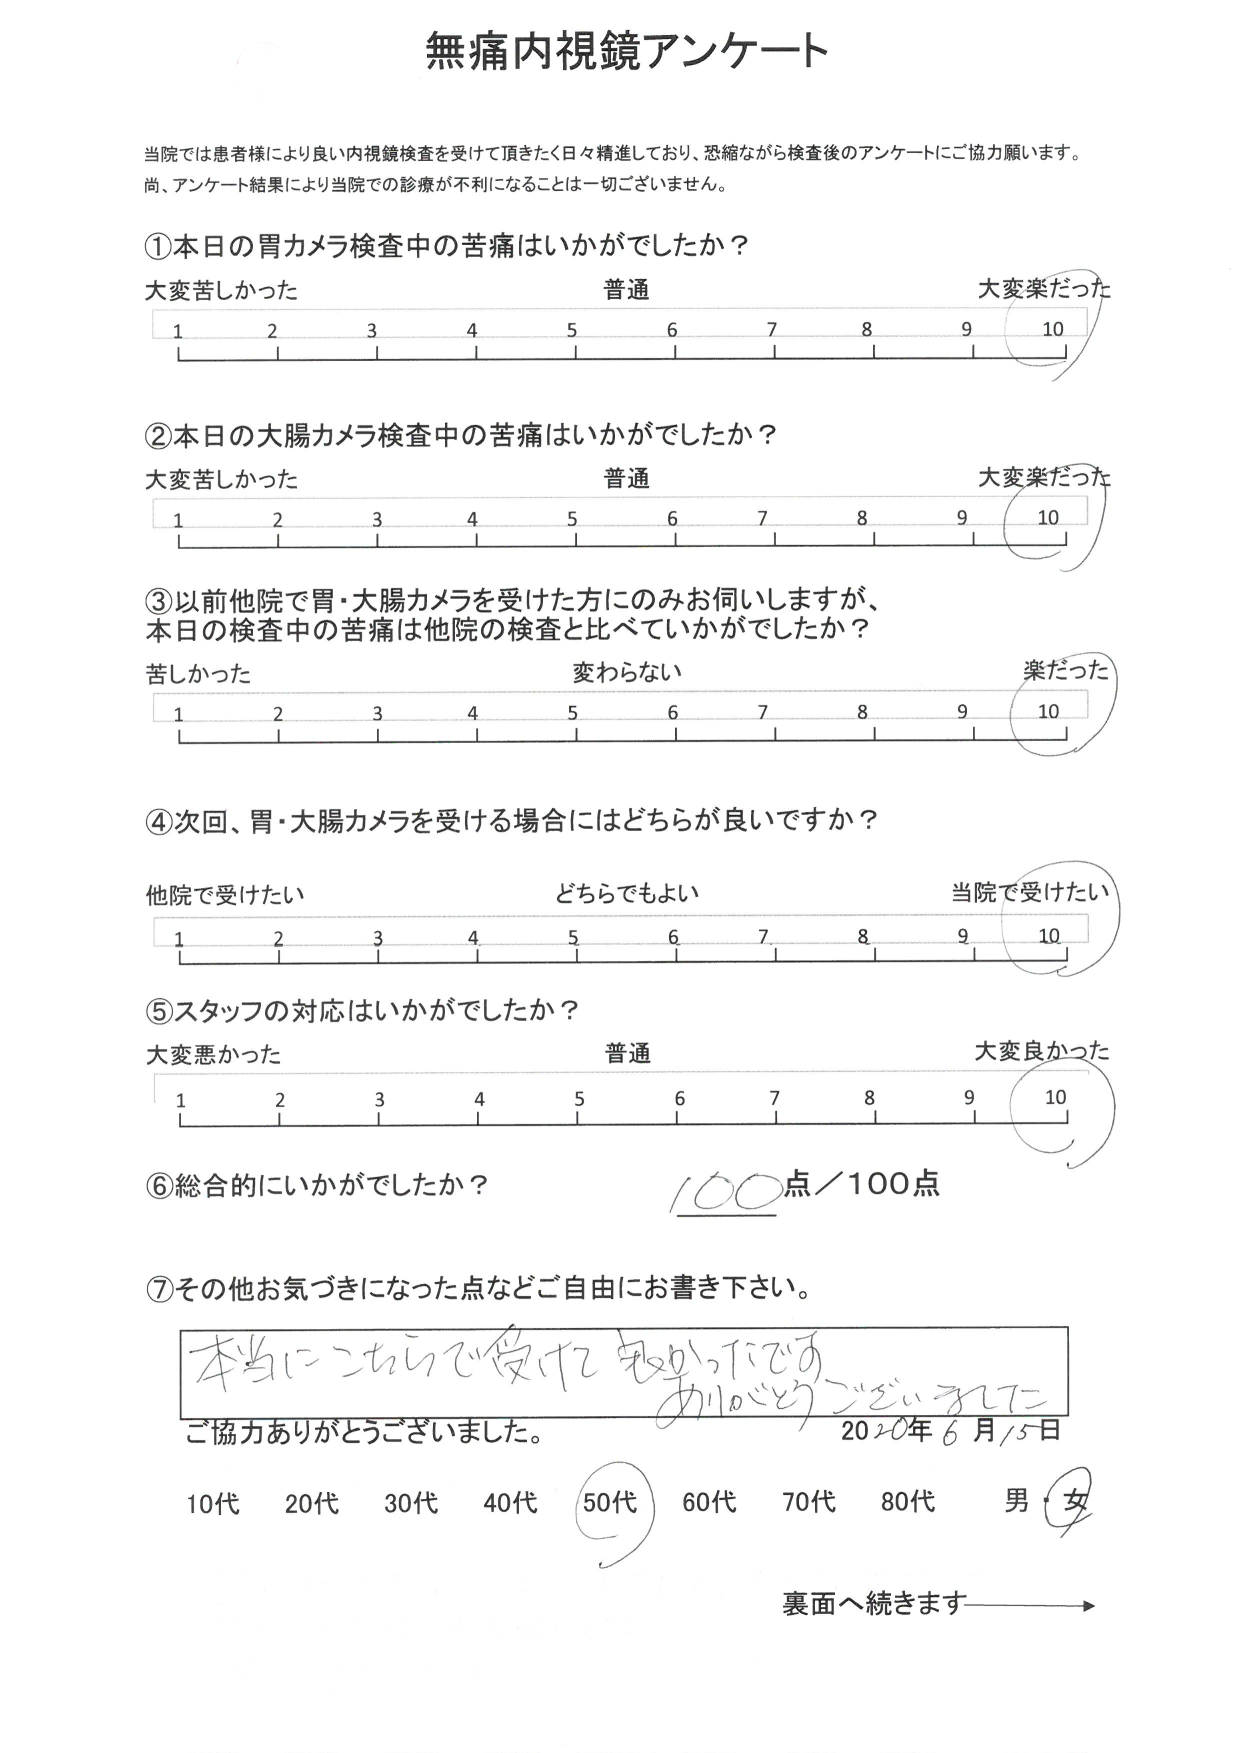 無痛内視鏡アンケート
当院では患者様により良い内視鏡検査を受けて頂きたく日々精進しており、恐縮ながら検査後のアンケートにご協力願います。
尚、アンケート結果により当院での診療が不利になることは一切ございません。
①本日の胃カメラ検査中の苦痛はいかがでしたか？
大変苦しかった 普通 大変楽だった
1 2 3 4 5 6 7 8 9 10
②本日の大腸カメラ検査中の苦痛はいかがでしたか？
大変苦しかった 普通 大変楽だった
1 2 3 4 5 6 7 8 9 10
③以前他院で胃・大腸カメラを受けた方にのみお伺いしますが、
本日の検査中の苦痛は他院の検査と比べていかがでしたか？
苦しかった 変わらない 楽だった
1 2 3 4 5 6 7 8 9 10
④次回、胃・大腸カメラを受ける場合にはどちらが良いですか？
他院で受けたい どちらでもよい 当院で受けたい
1 2 3 4 5 6 7 8 9 10
⑤スタッフの対応はいかがでしたか？
大変悪かった 普通 大変良かった
1 2 3 4 5 6 7 8 9 10
⑥総合的にいかがでしたか？ 100点／100点
⑦その他お気づきになった点などご自由にお書き下さい。
本当にこちらで受けて良かったです
ありがとうございました
ご協力ありがとうございました。 2020年6月15日
10代 20代 30代 40代 50代 60代 70代 80代 男・女
裏面へ続きます